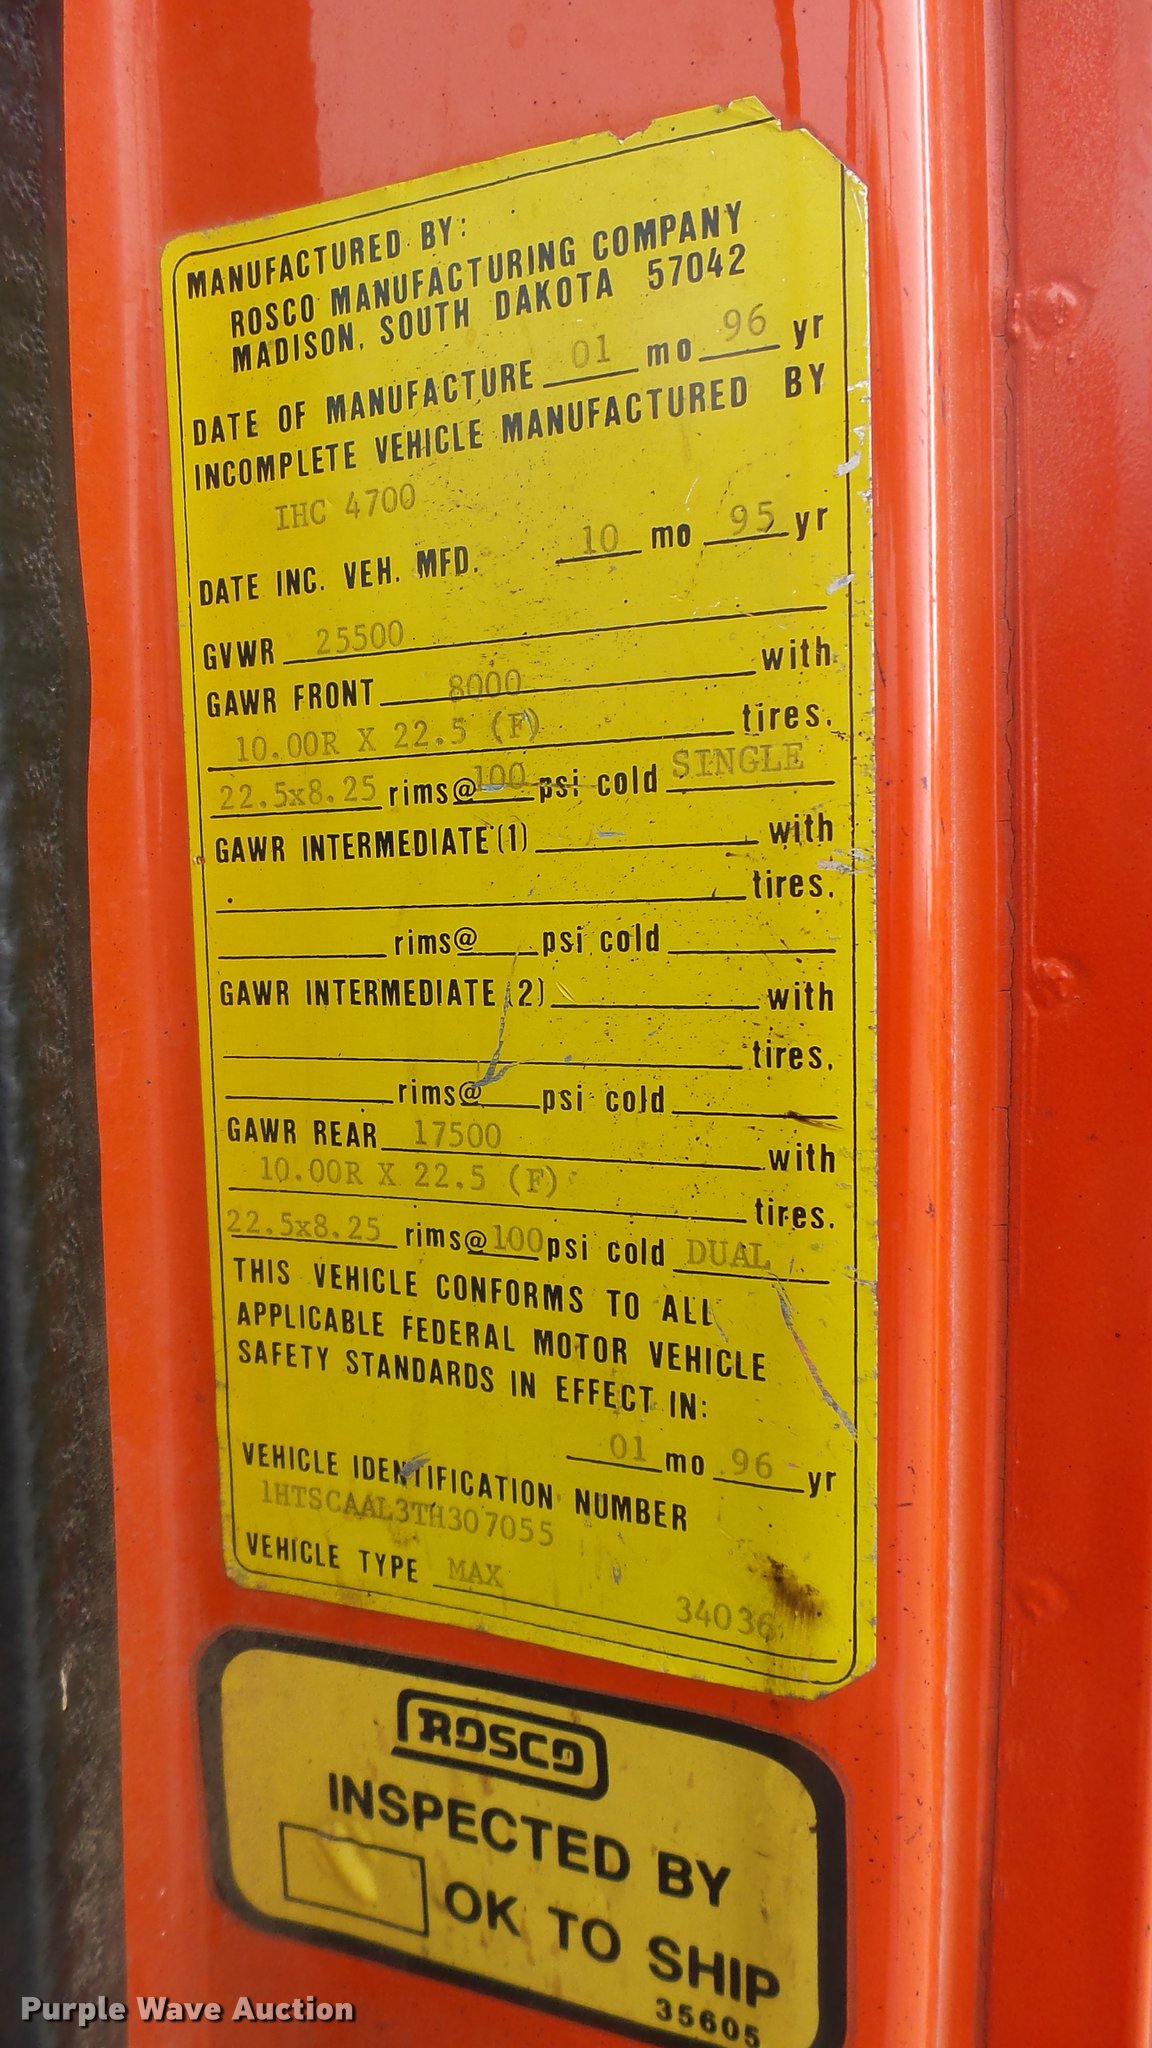 MANUFACTURED BY:
ROSCO MANUFACTURING COMPANY
MADISON, SOUTH DAKOTA 57042
DATE OF MANUFACTURE 01 mo 96 yr
INCOMPLETE VEHICLE MANUFACTURED BY
IHC 4700
DATE INC. VEH. MFD. 10 mo 95 yr
GVWR 25500
GAWR FRONT 8000 with
10.00R X 22.5 (F) tires.
22.5x8.25 rims@ 100 psi cold SINGLE
GAWR INTERMEDIATE (1) with
tires.
rims@ psi cold
GAWR INTERMEDIATE (2) with
tires.
rims@ psi cold
GAWR REAR 17500 with
10.00R X 22.5 (F) tires.
22.5x8.25 rims@ 100 psi cold DUAL
THIS VEHICLE CONFORMS TO ALL
APPLICABLE FEDERAL MOTOR VEHICLE
SAFETY STANDARDS IN EFFECT IN:
01 mo 96 yr
VEHICLE IDENTIFICATION NUMBER
1HTSCAAL3TH307055
VEHICLE TYPE MAX
34036
ROSCO
INSPECTED BY
OK TO SHIP
35605
Purple Wave Auction